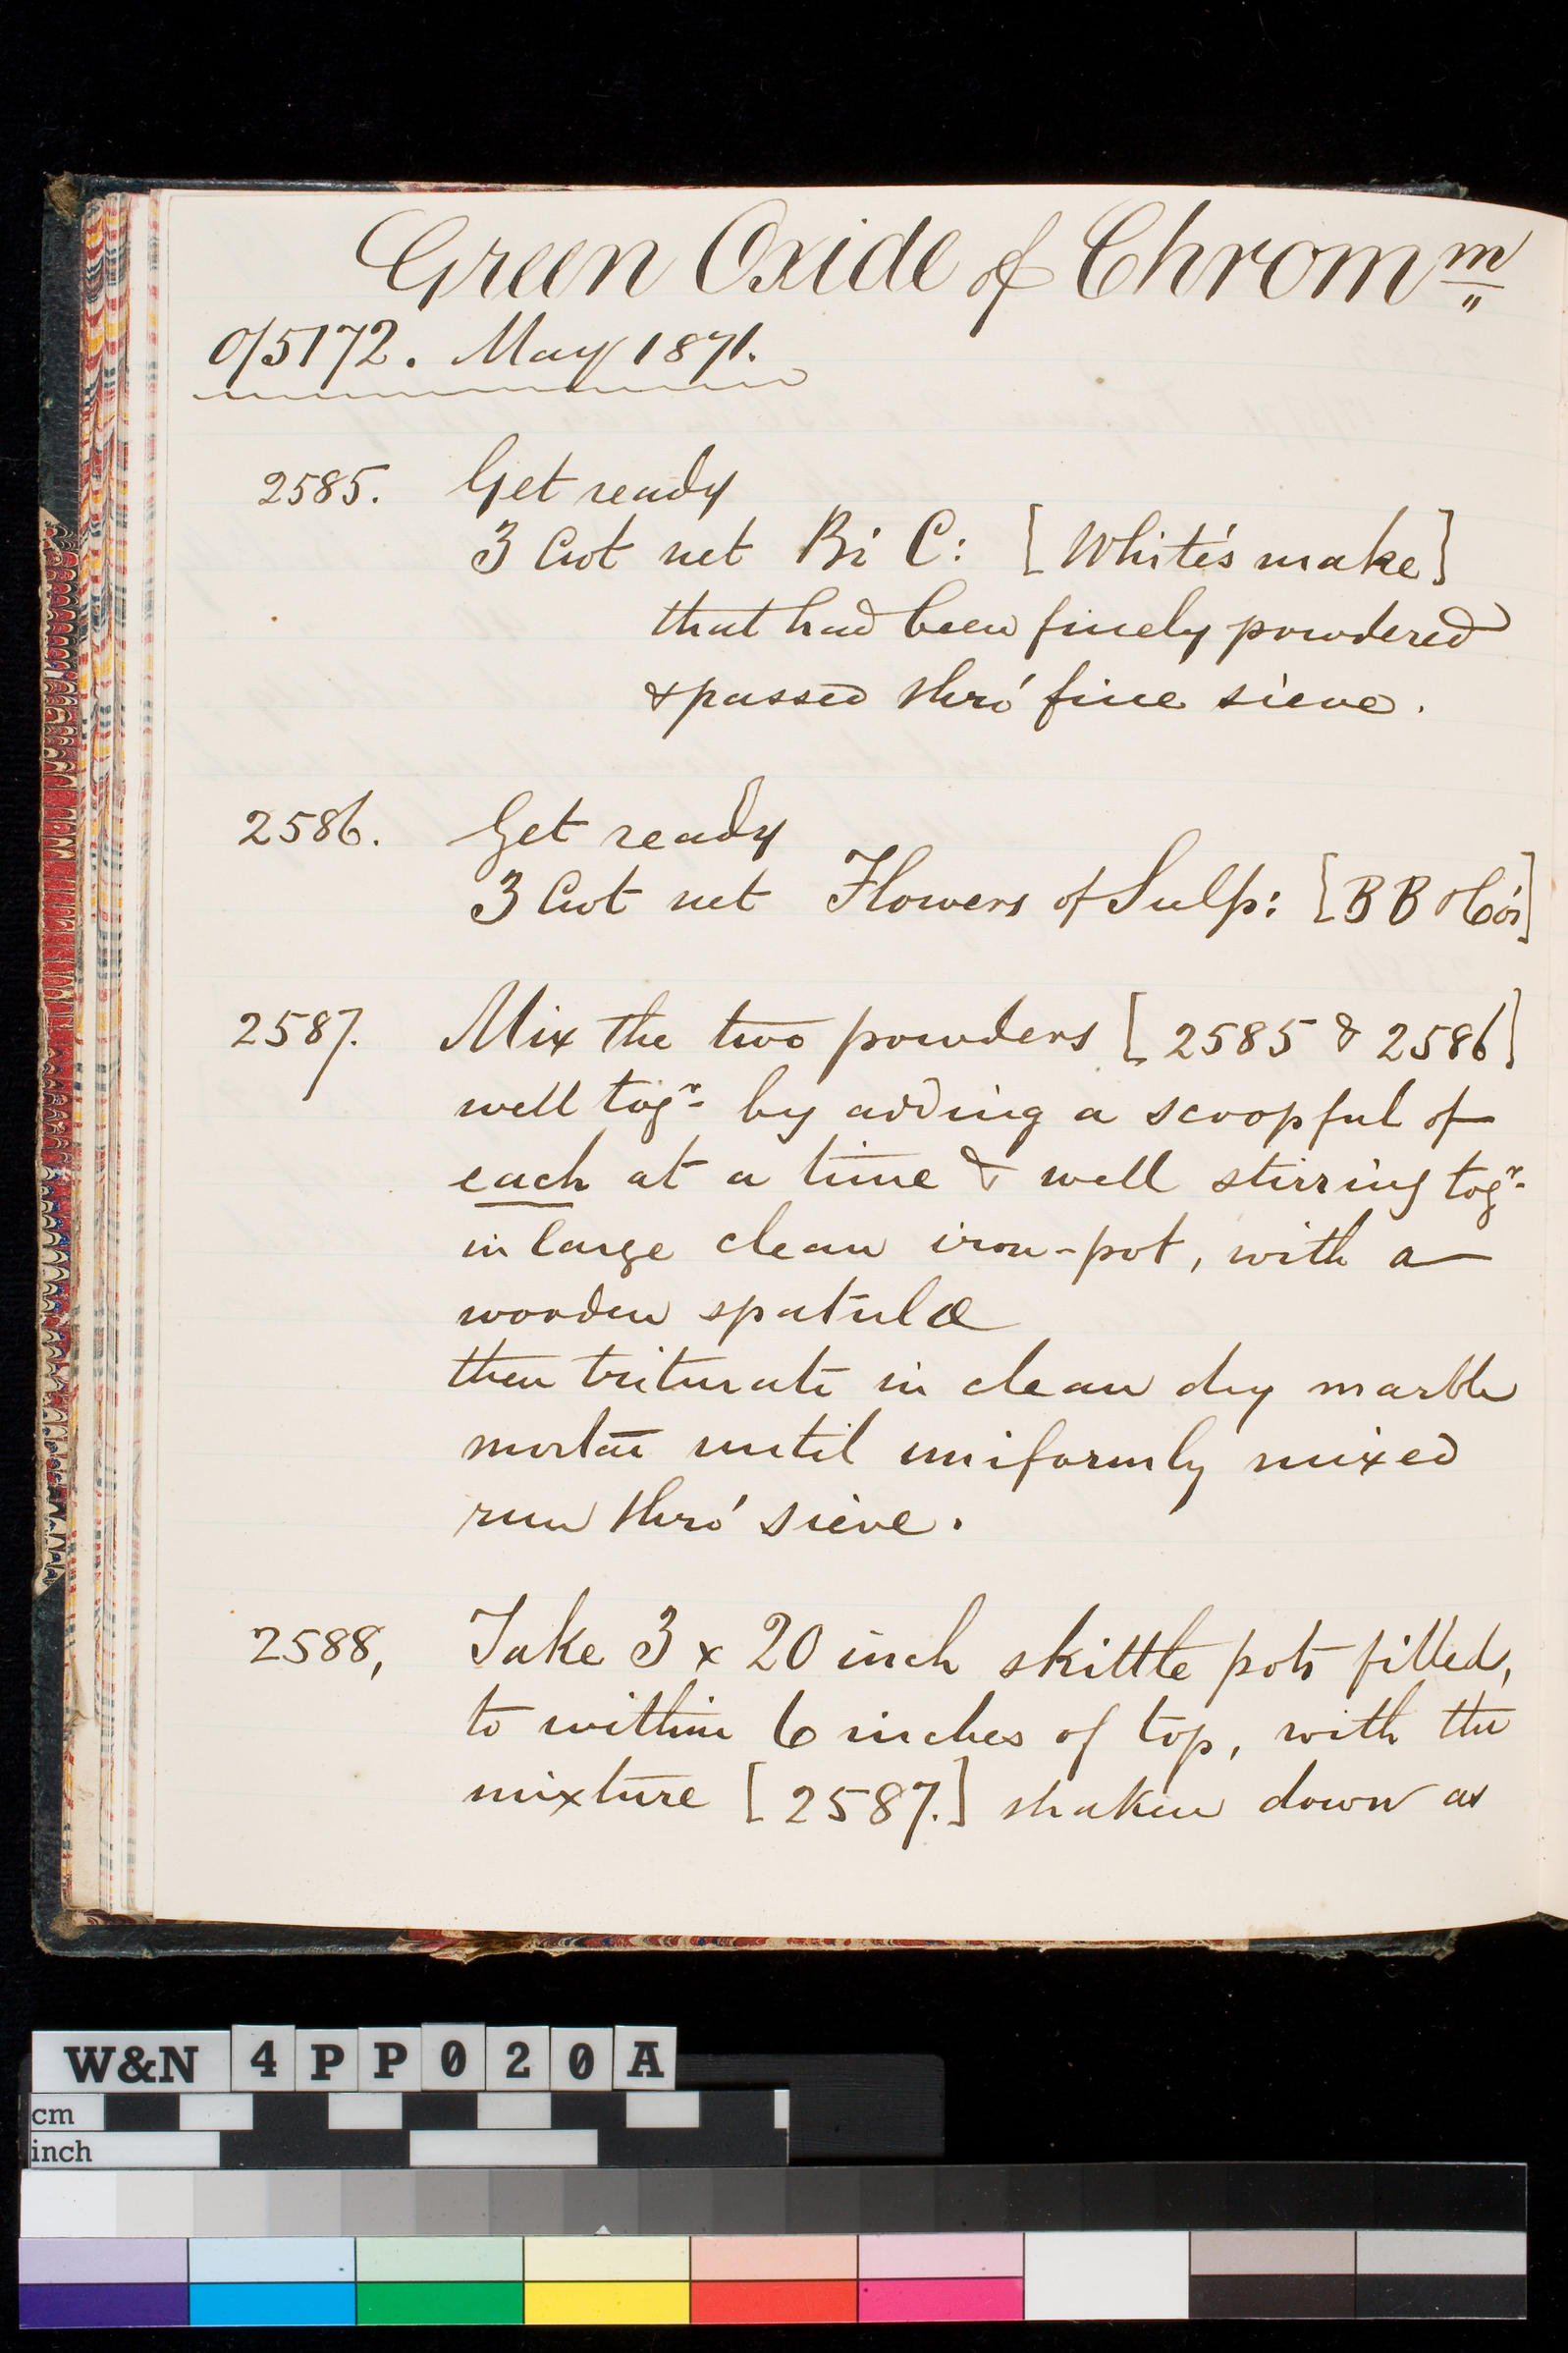 Green Oxide of Chromm
O/5172. May 1871.
2585. Get ready
3 Cwt net Bi C: [White's make]
that had been finely powdered
& passed thro' fine sieve.
2586. Get ready
3 Cwt net Flowers of Sulp: [B B & Co's]
2587. Mix the two powders [2585 & 2586]
well togr by adding a scoopful of
each at a time & well stirring togr
in large clean iron-pot, with a
wooden spatula
then triturate in clean dry marble
mortar until uniformly mixed
run thro' sieve.
2588, Take 3 x 20 inch skittle pots filled,
to within 6 inches of top, with the
mixture [2587.] shaken down as
W&N 4PP020A
cm
inch